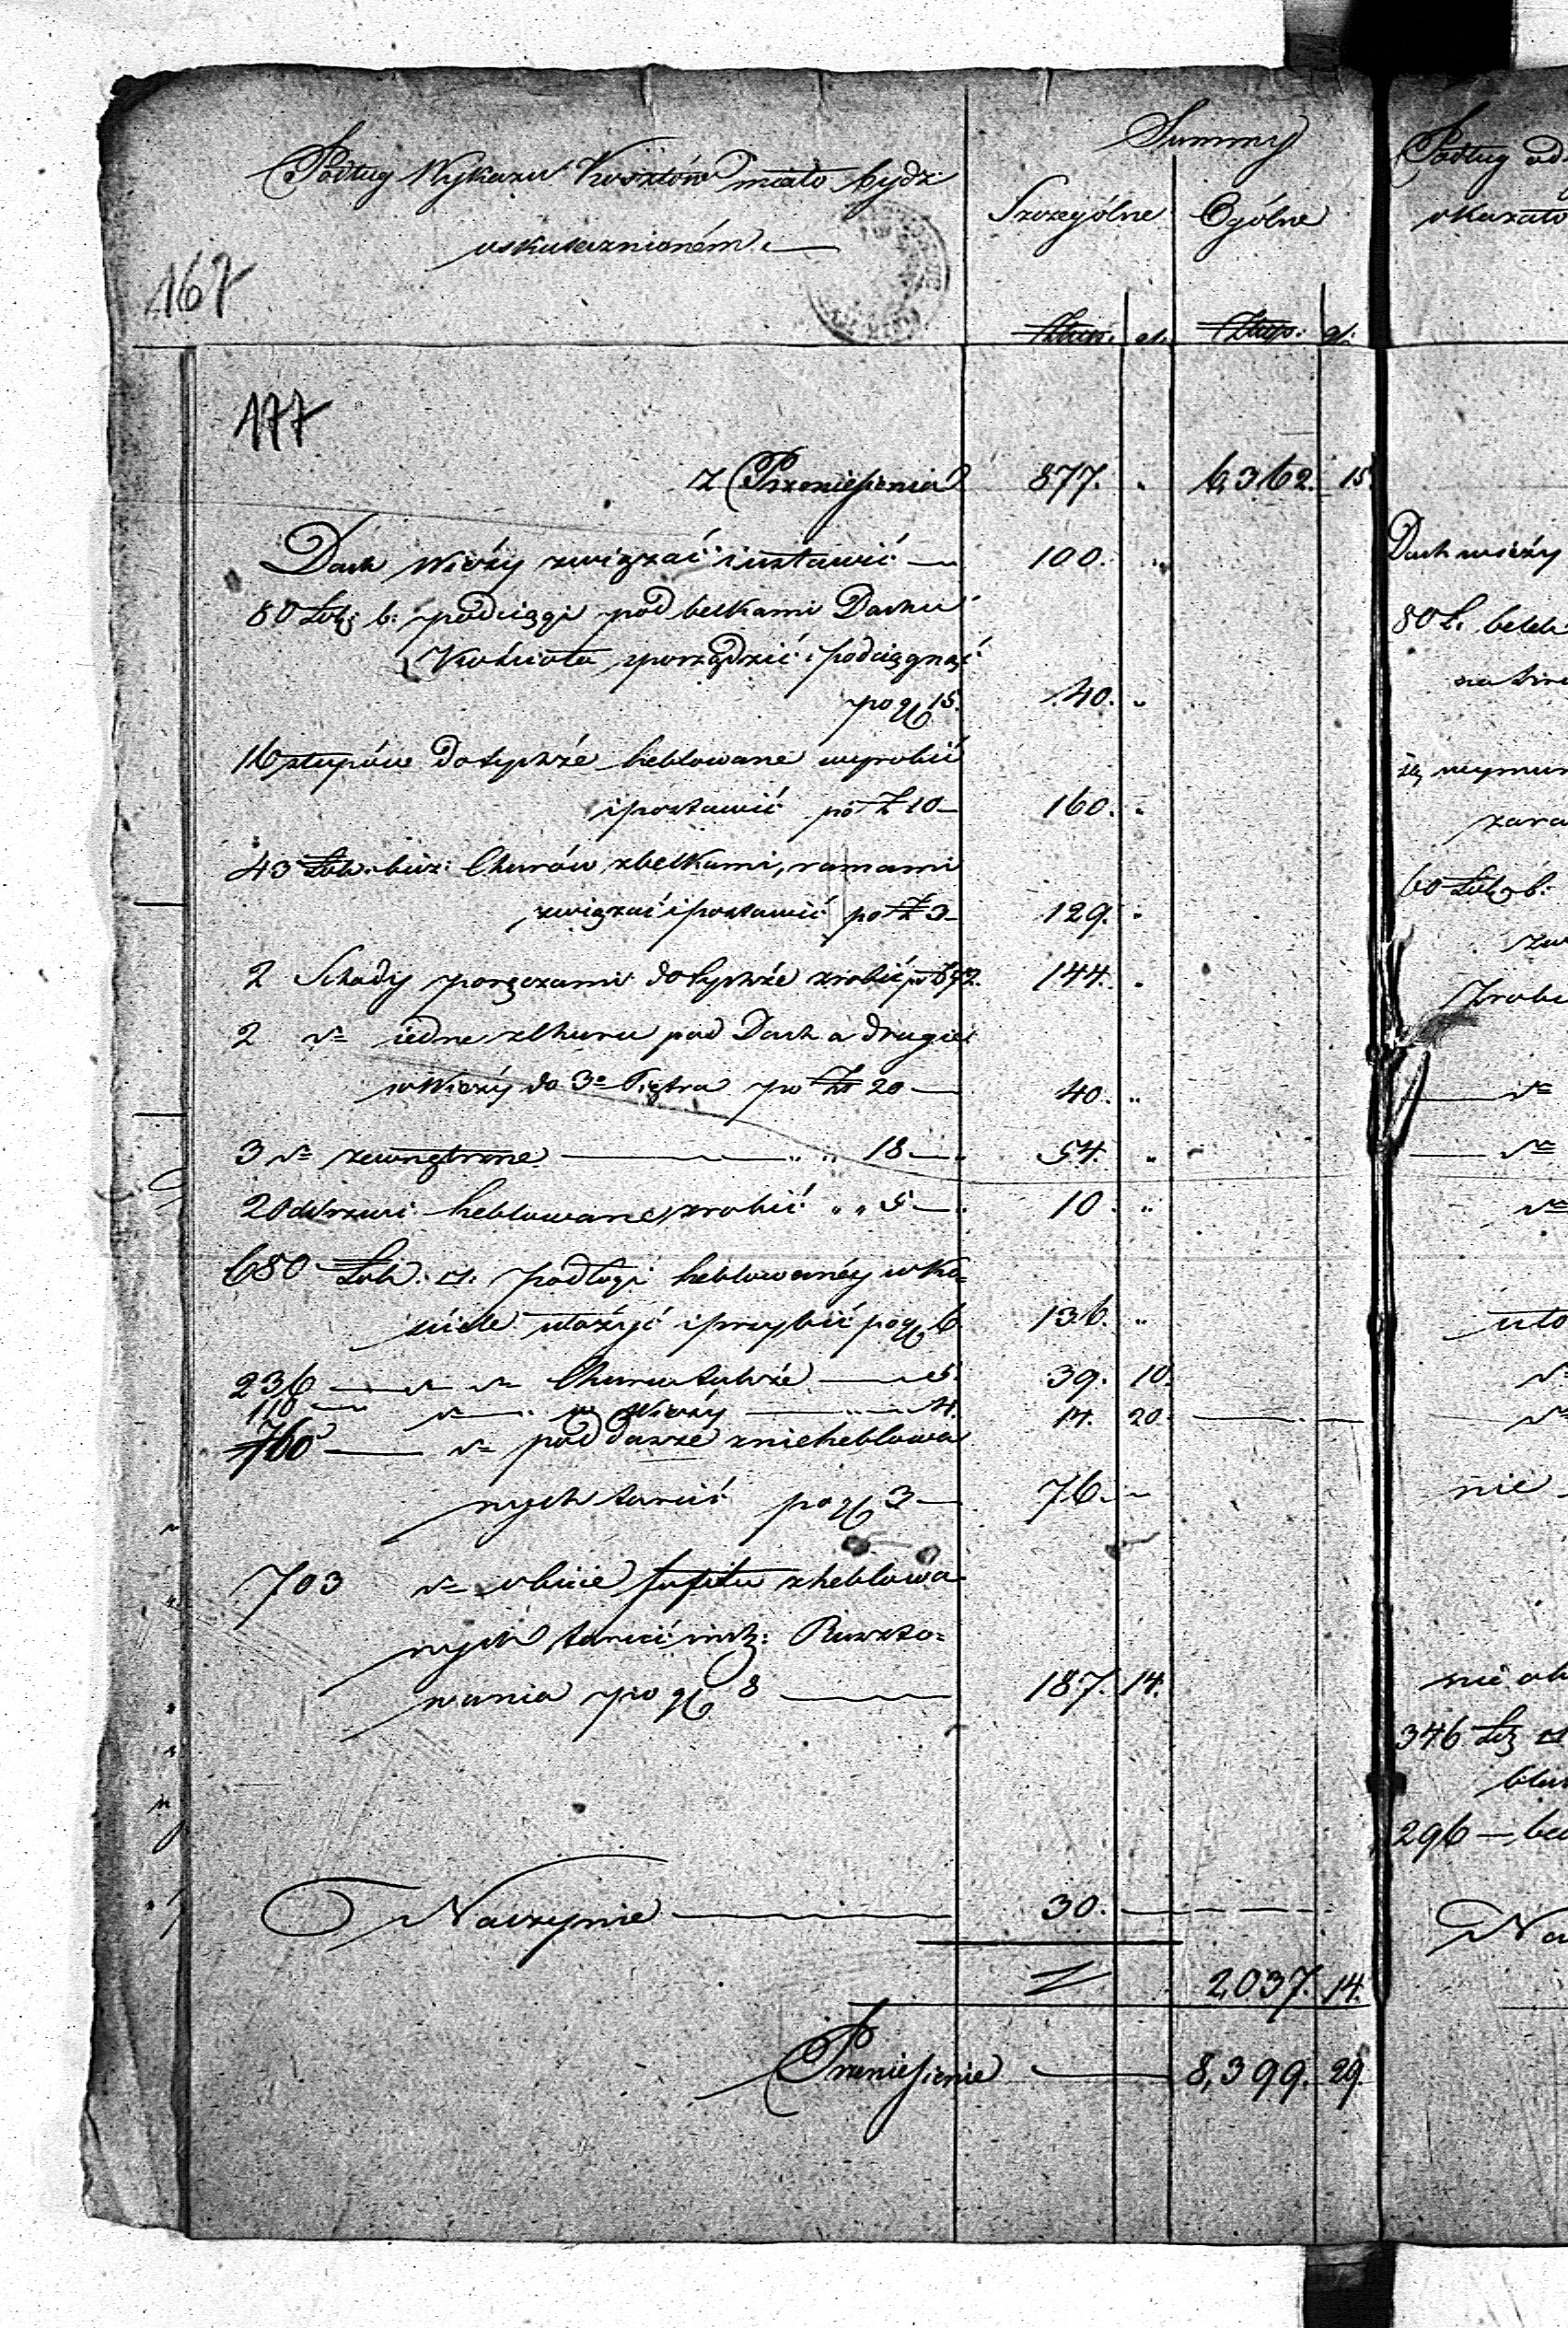 Summy
Podług Wykazu Kosztów miało bydz
uskutecznioném.
Szczególne Ogólne
167
Złtup. gr. Złtup. gr.
177
z Przeniesienia 877. " 6,362. 15.
Dach Wieży związać i ustawić — 100. "
80 Łok: b: podciągi pod belkami Dachu
Kościoła sporządzić i podciągnąć
po gr 15. 40. "
16 słupów do tychże heblowane wyrobić
i postawić po Zł 10 — 160. "
43 Łok. bież: Churów z belkami, ramami
związać i postawić po Zł 3 — 129. "
2 Schody poręczami do tychże zrobić po Zł 72. 144. "
2 dto iedne z Churu pod Dach a drugie
w Wieży do 3o Piętra po Zł 20 — 40. "
3 dto zewnętrzne — " " 18 — 54. "
2 oddrzwi heblowane zrobić " " 5 — 10. "
680 Łok. □: podłogi heblowanéy w Ko=
ściele ułożyć i przybić po gr 6 136. "
236 — dto dto Churu także — 5. 39. 10.
110 — dto — w Wieży — 4. 14. 20.
760 — dto poddasze z nieheblowa
nych tarcić po gr 3 — 76. —
703 dto obicie sufitu z heblowa
nych tarcić Ruszto=
wania po gr 8 — 187. 14.
Naczynie — 30. —
2,037. 14.
Przeniesienie — 8,399. 29.
Podług od
okazało
Dach wieży
80 Ł. belek
60 Łok. b:
Zrobi
dto
dto
dto
uło
dto
dto
nie
nie ob
346 Łok □
296 —
Na